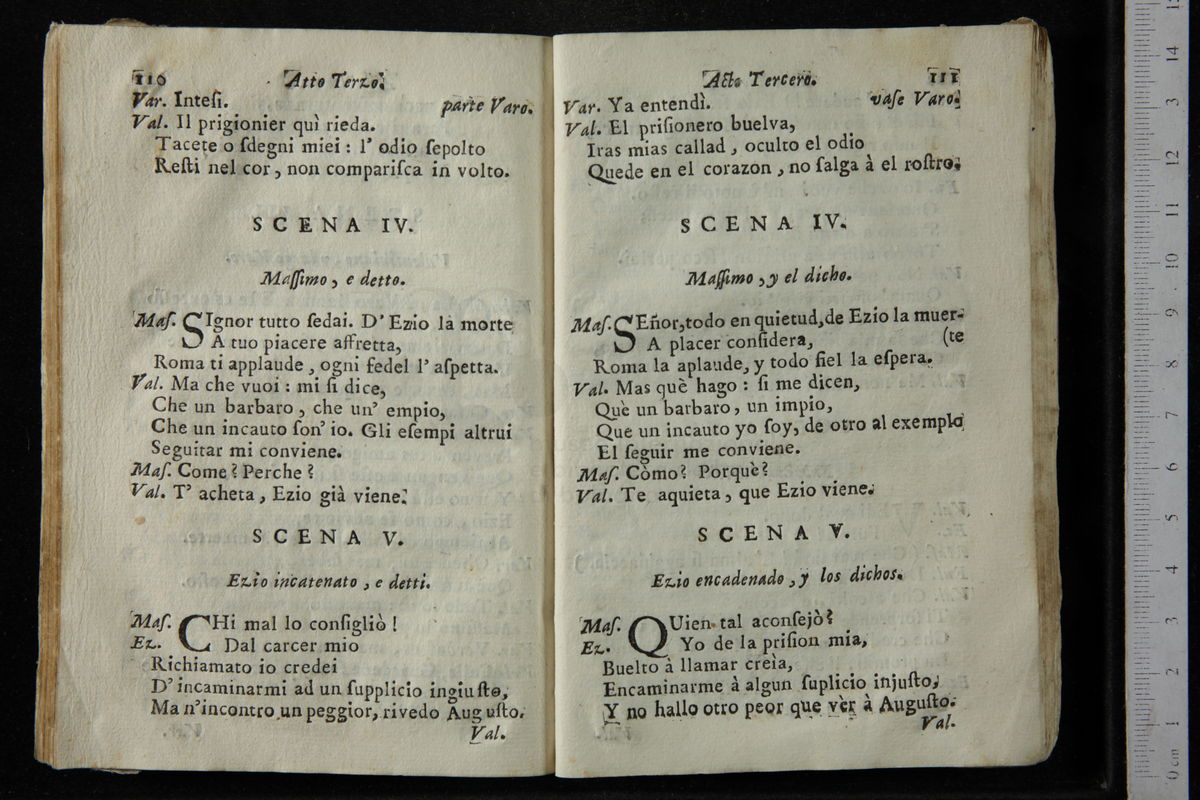 110 Atto Terzo.
Var. Intesi. parte Varo.
Val. Il prigionier quì rieda.
Tacete o sdegni miei : l' odio sepolto
Resti nel cor, non comparisca in volto.
SCENA IV.
Massimo, e detto.
Mas. SIgnor tutto sedai. D' Ezio la morte
A tuo piacere affretta,
Roma ti applaude, ogni fedel l' aspetta.
Val. Ma che vuoi : mi si dice,
Che un barbaro, che un' empio,
Che un incauto son' io. Gli esempi altrui
Seguitar mi conviene.
Mas. Come? Perche?
Val. T' acheta, Ezio già viene.
SCENA V.
Ezio incatenato, e detti.
Mas. CHi mal lo consigliò!
Ez. Dal carcer mio
Richiamato io credei
D' incaminarmi ad un supplicio ingiusto,
Ma n'incontro un peggior, rivedo Augusto.
Val.
Acto Tercero. 111
Var. Ya entendì. vase Varo.
Val. El prisionero buelva,
Iras mias callad, oculto el odio
Quede en el corazon, no salga à el rostro.
SCENA IV.
Massimo, y el dicho.
Mas. SEñor, todo en quietud, de Ezio la muer-
A placer considera, (te
Roma la aplaude, y todo fiel la espera.
Val. Mas què hago : si me dicen,
Què un barbaro, un impio,
Que un incauto yo soy, de otro al exemplo
El seguir me conviene.
Mas. Còmo? Porquè?
Val. Te aquieta, que Ezio viene.
SCENA V.
Ezio encadenado, y los dichos.
Mas. QUien tal aconsejò?
Ez. Yo de la prision mia,
Buelto à llamar creìa,
Encaminarme à algun suplicio injusto,
Y no hallo otro peor que vèr à Augusto.
Val.
0 cm 1 2 3 4 5 6 7 8 9 10 11 12 13 14 15